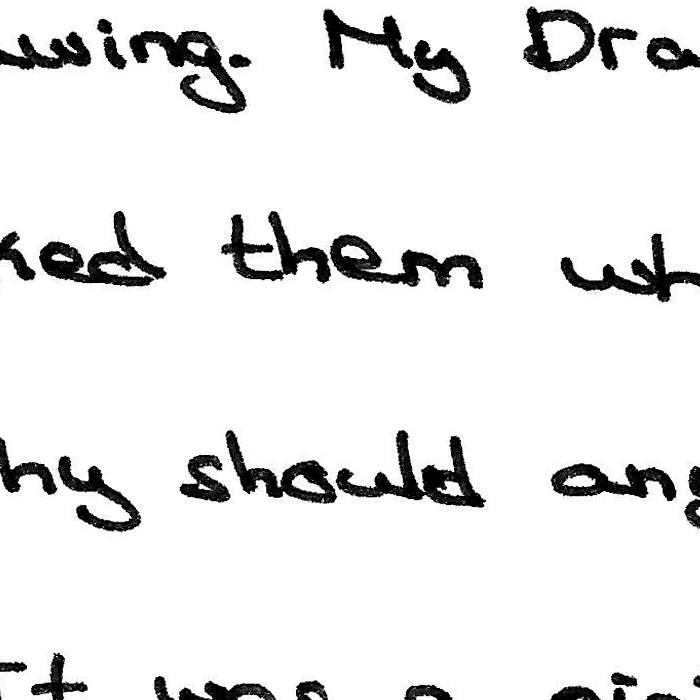 awing. My Dra
ked them wh
hy should any
It was a pic